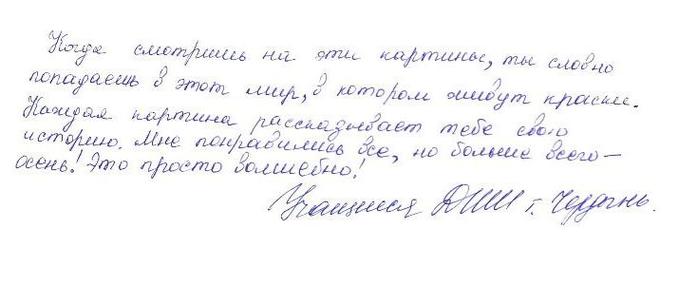 Когда смотришь на эти картины, ты словно
попадаешь в этот мир, в котором живут краски.
Каждая картина рассказывает тебе свою
историю. Мне понравились все, но больше всего —
осень! Это просто волшебно!
Учащиеся ДШИ г. Чердынь.